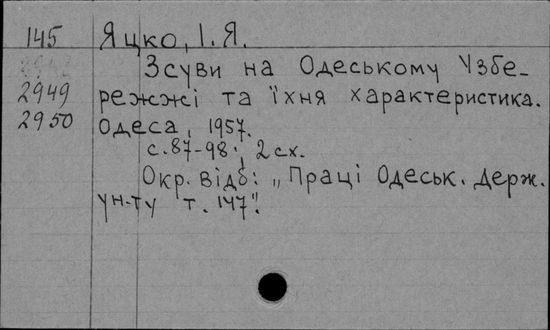 145 Яцко, І. Я.
Зсуви на Одеському Узбе-
2949 режжі та їхня характеристика.
2950 Одеса, 1957.
с. 87-98; 2 сх.
Окр. відб: „Праці Одеськ. держ.
ун-ту т. 147".